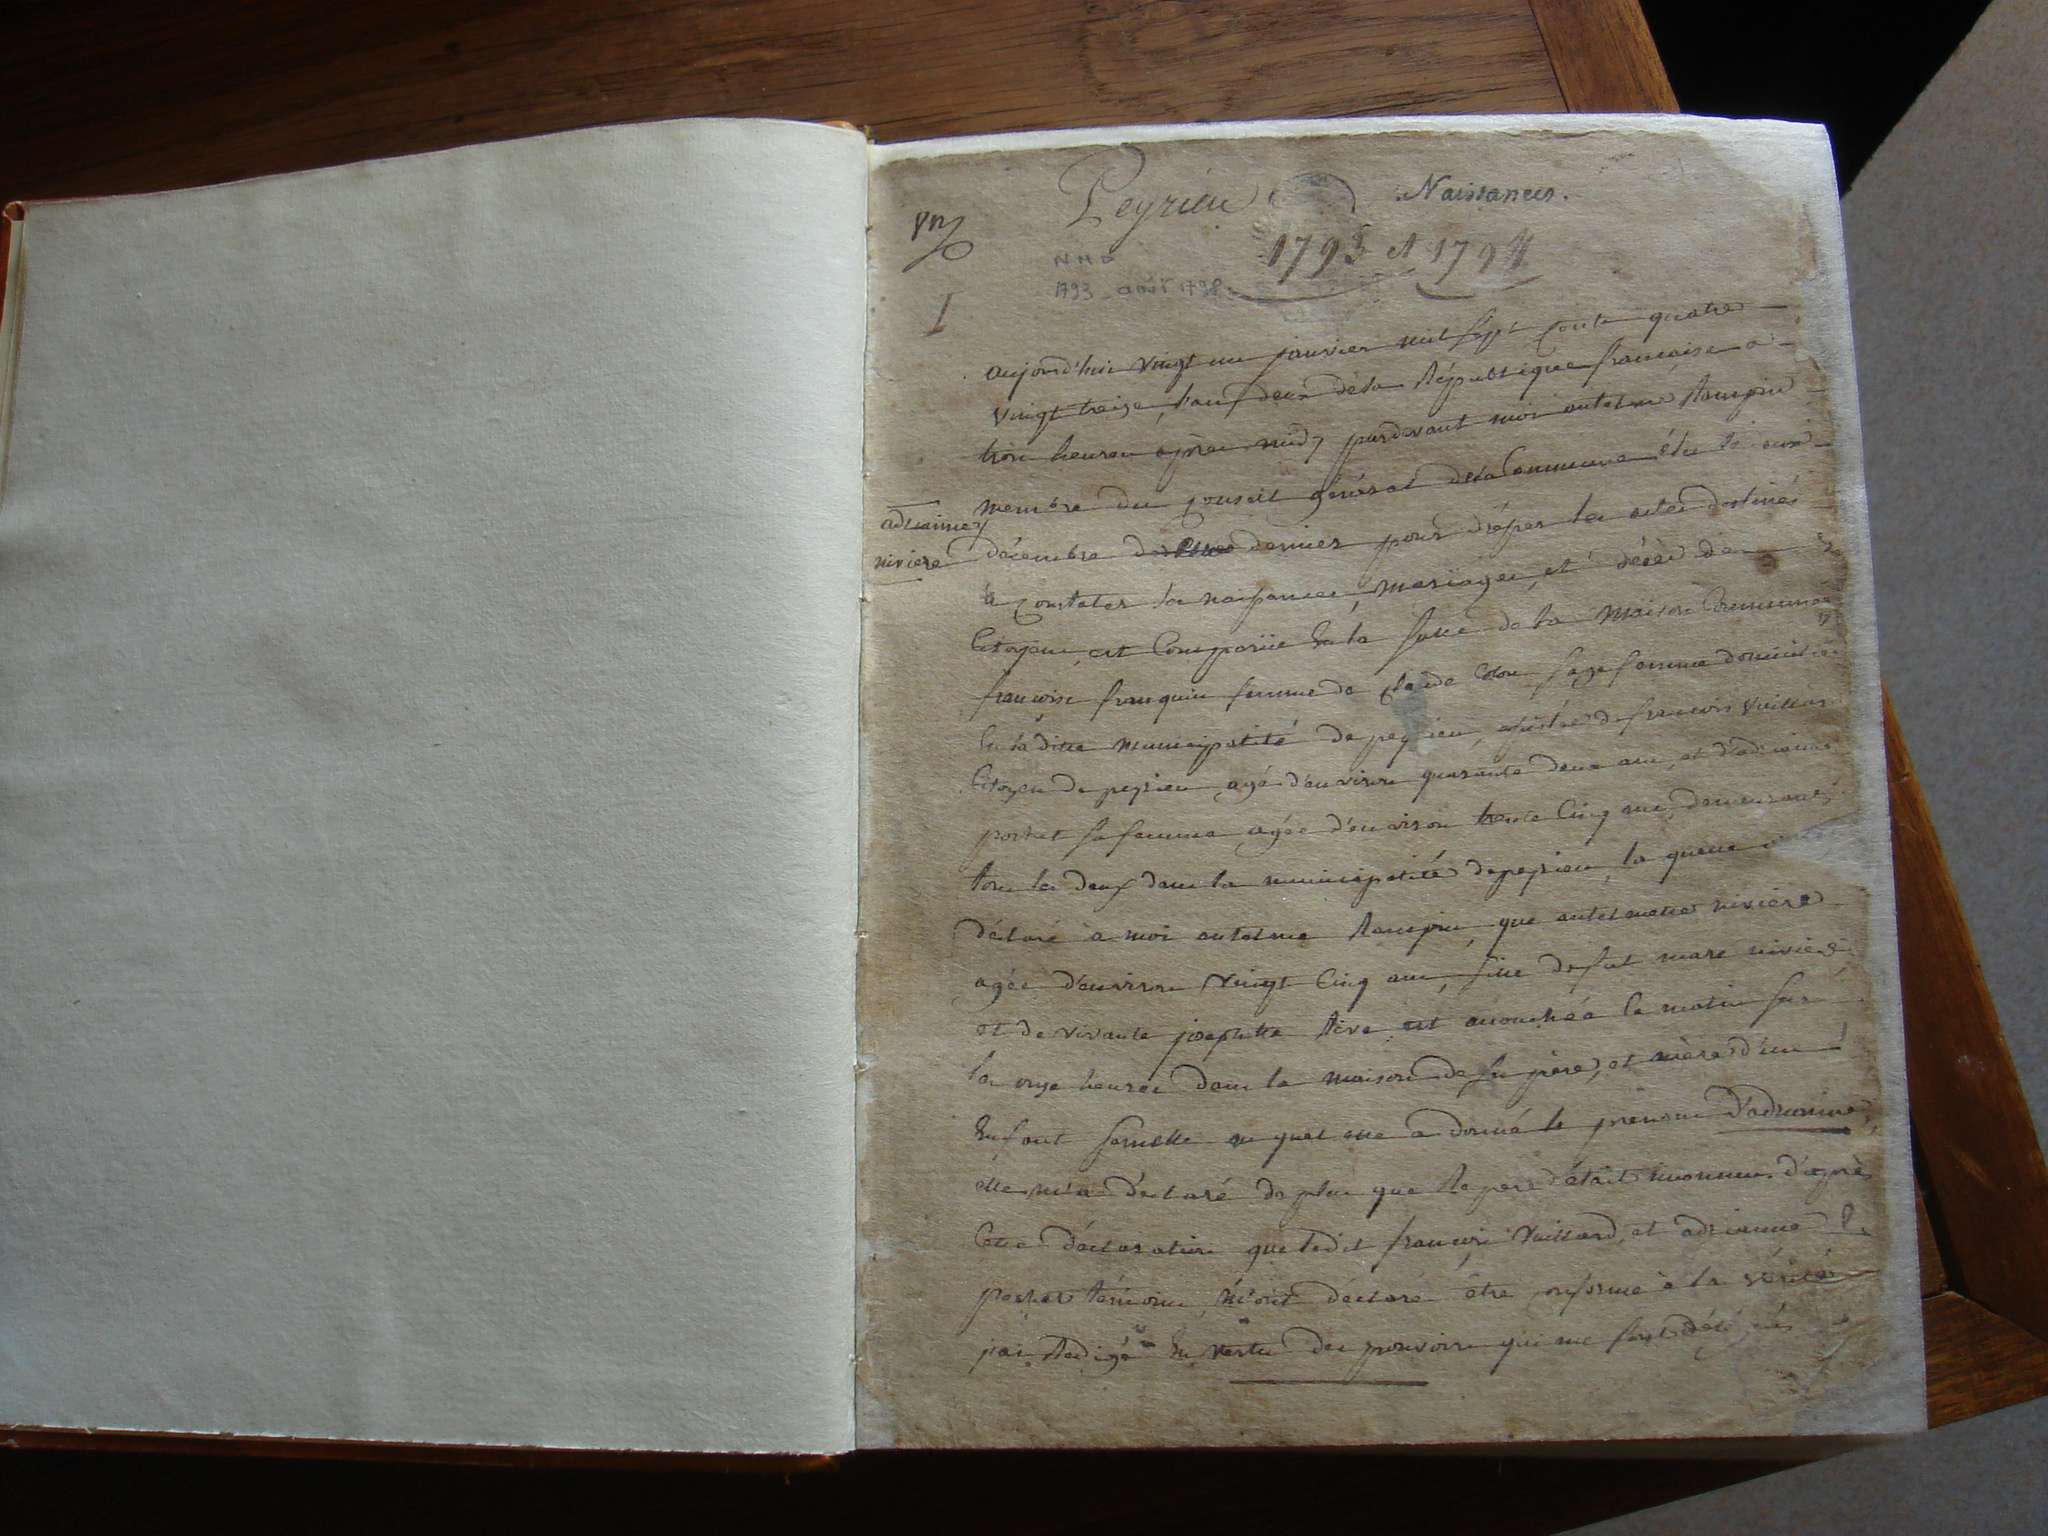 Peyrieu
Naissances.
1793 et 1794
NMD
1793 - août 1798
I
adrianne
niviere
aujourd'hui vingt un janvier mil sept cents quatre
vingt treize, l'an deux dela République francaise a
trois heures apres midy pardevant moi antelme Rampin
membre du conseil général dela Commune élu le
décembre dernier pour rédiger les actes destinés
a constater les naissances, mariages, et décès des
Citoyens, est Comparüe En la salle de la maison Commune
francoise franquin femme de claude Colon sage femme domiciliée
En la ditte municipalité de peyrieu, assistée de francois Vuillard
Citoyen de peyrieu agé d'environ quarante deux ans, et d'adrianne
pochet sa femme agée d'environ trente Cinq ans, demeurants
tous les deux dans la municipalité depeyrieu, la quelle
déclaré a moi antelme Rampin que antelmette niviere
agée d'environ Vingt Cinq ans, fille defut marc niviere
et de vivante josephtte Rive est accouchée le matin sur
les onze heures dans la maison de ses père, et mère d'un
Enfant femelle au quel elle a donné le prénom d'adrianne,
elle m'a déclaré de plus que le pere était inconnu d'après
Cette déclaration que ledit francois Vuillard, et adrianne
pochet témoins, m'ont déclaré être conforme à la vérité
j'ai Redigé En vertu des pouvoirs qui me sont délégués